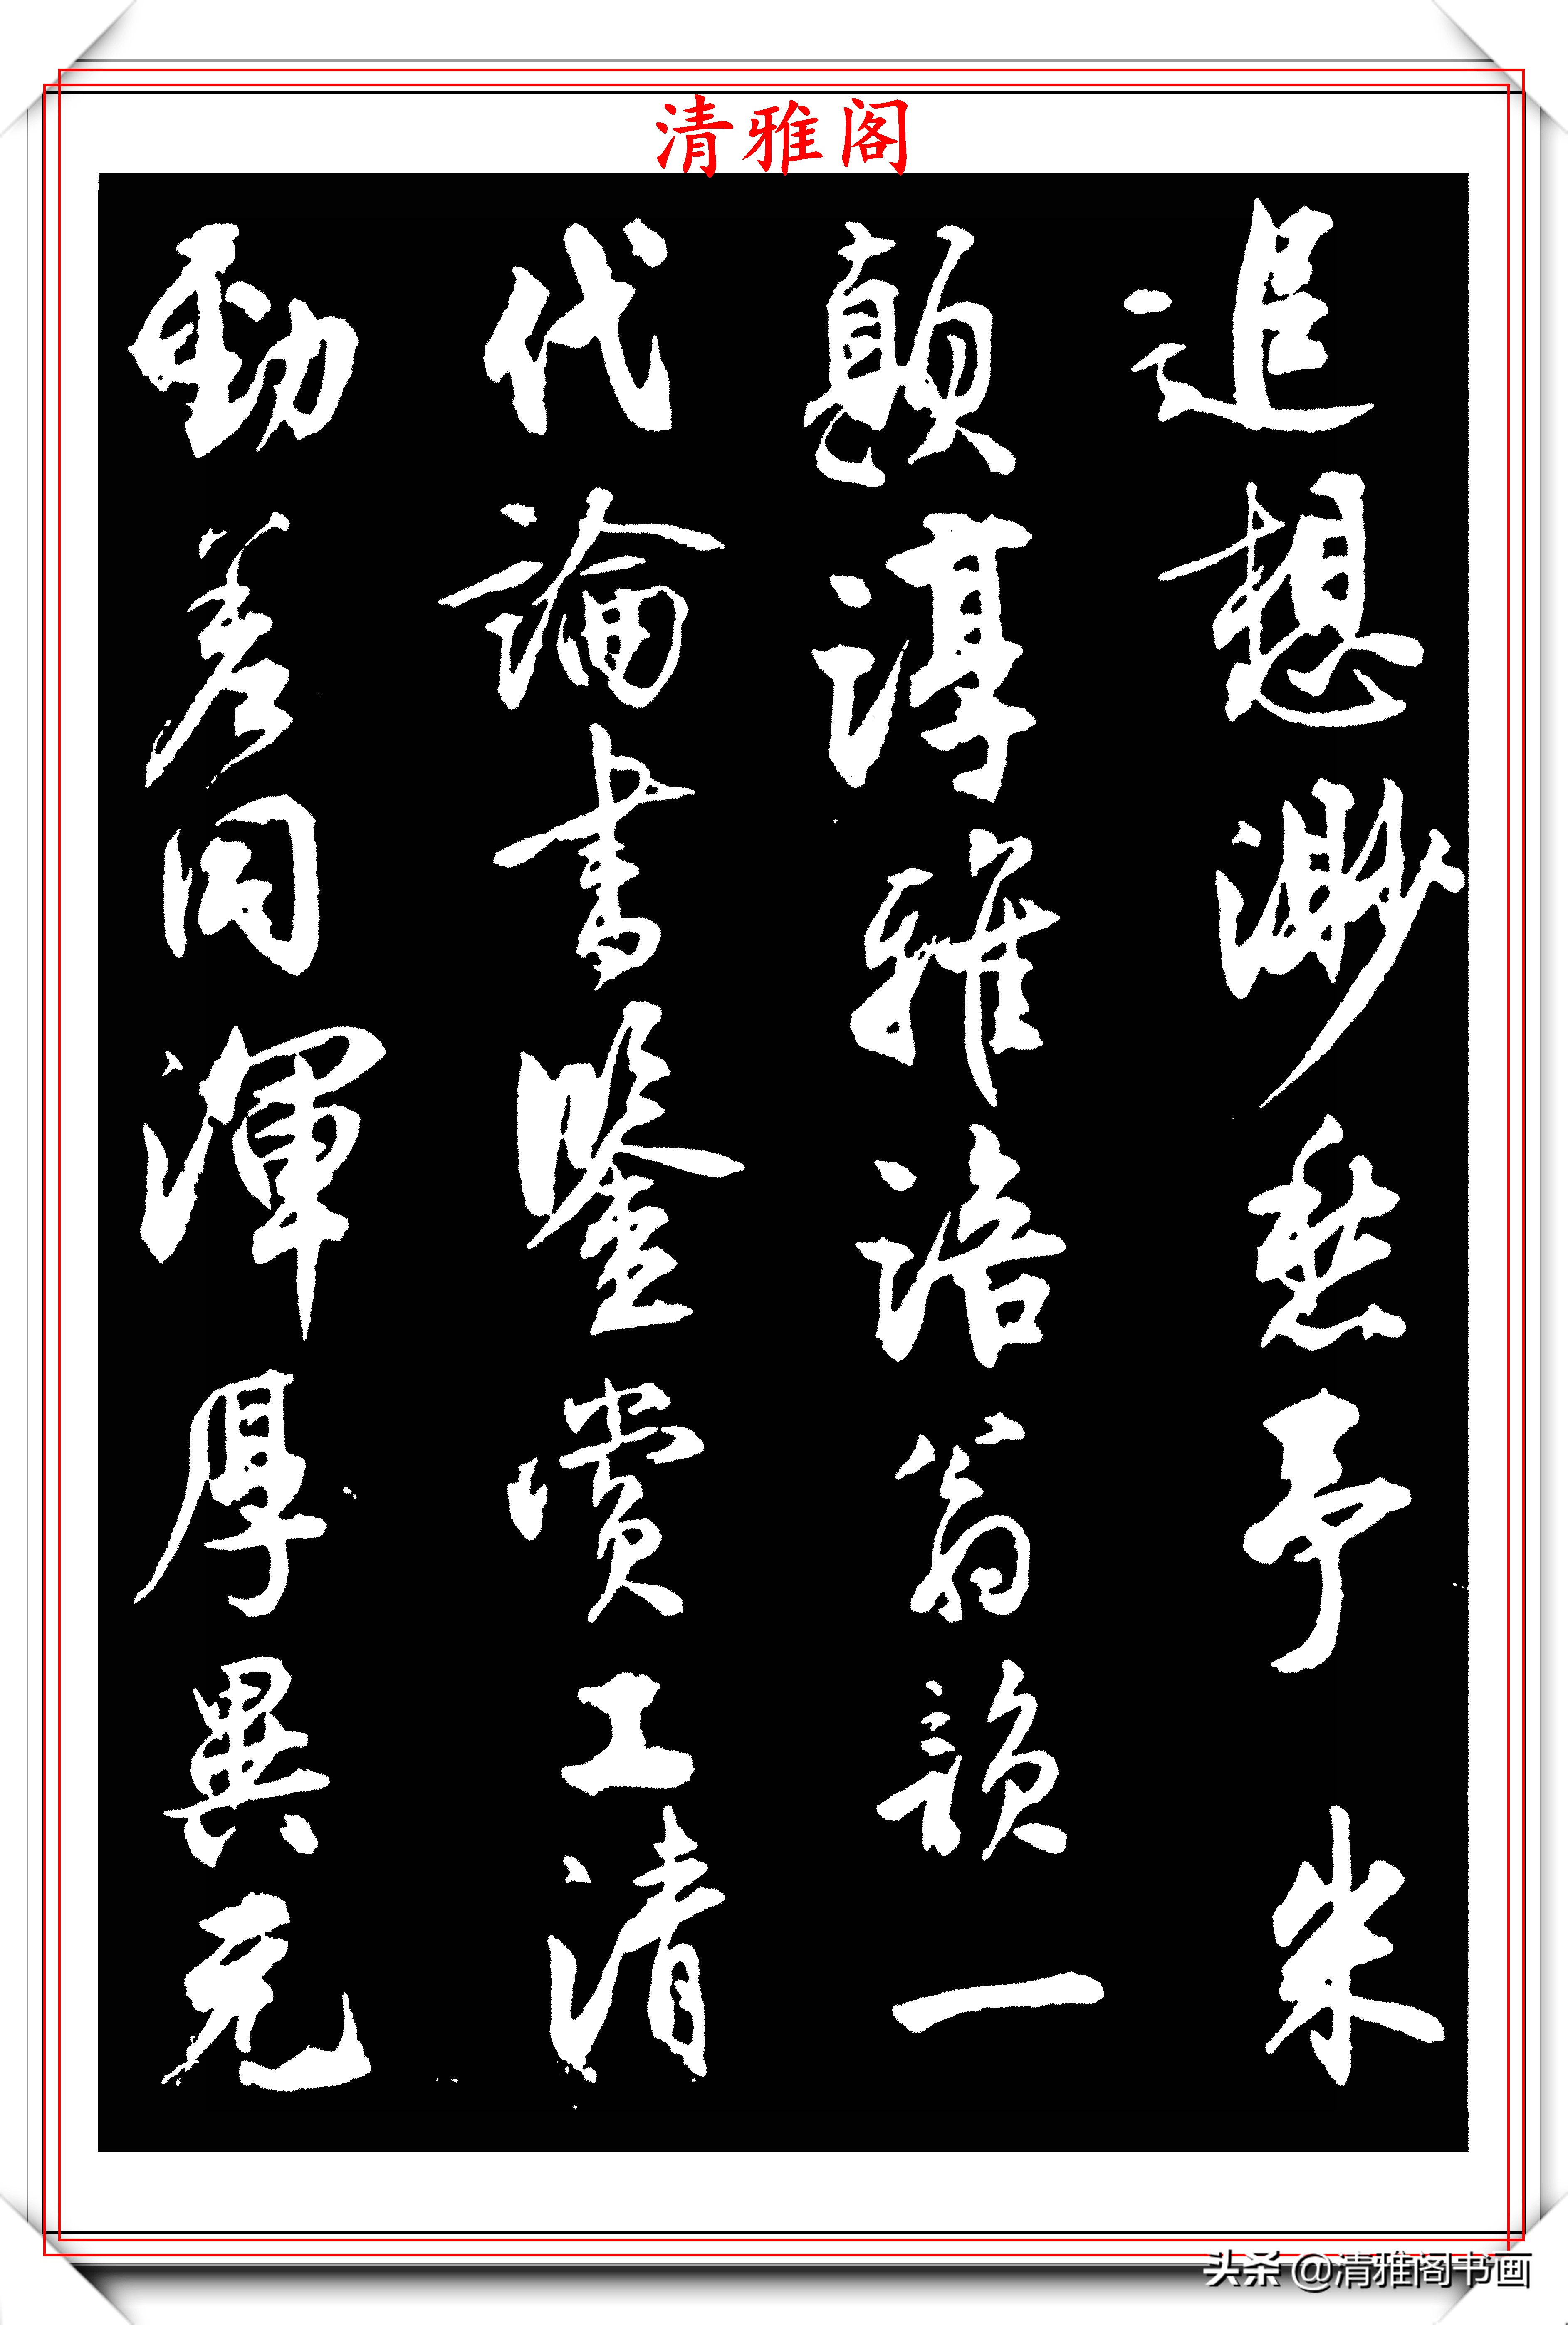 清雅阁
追想渺愁予 米
顛淳雅涪翁韻一
代論書鑒賞工清
勁差同渾厚異克
头条 @清雅阁书画